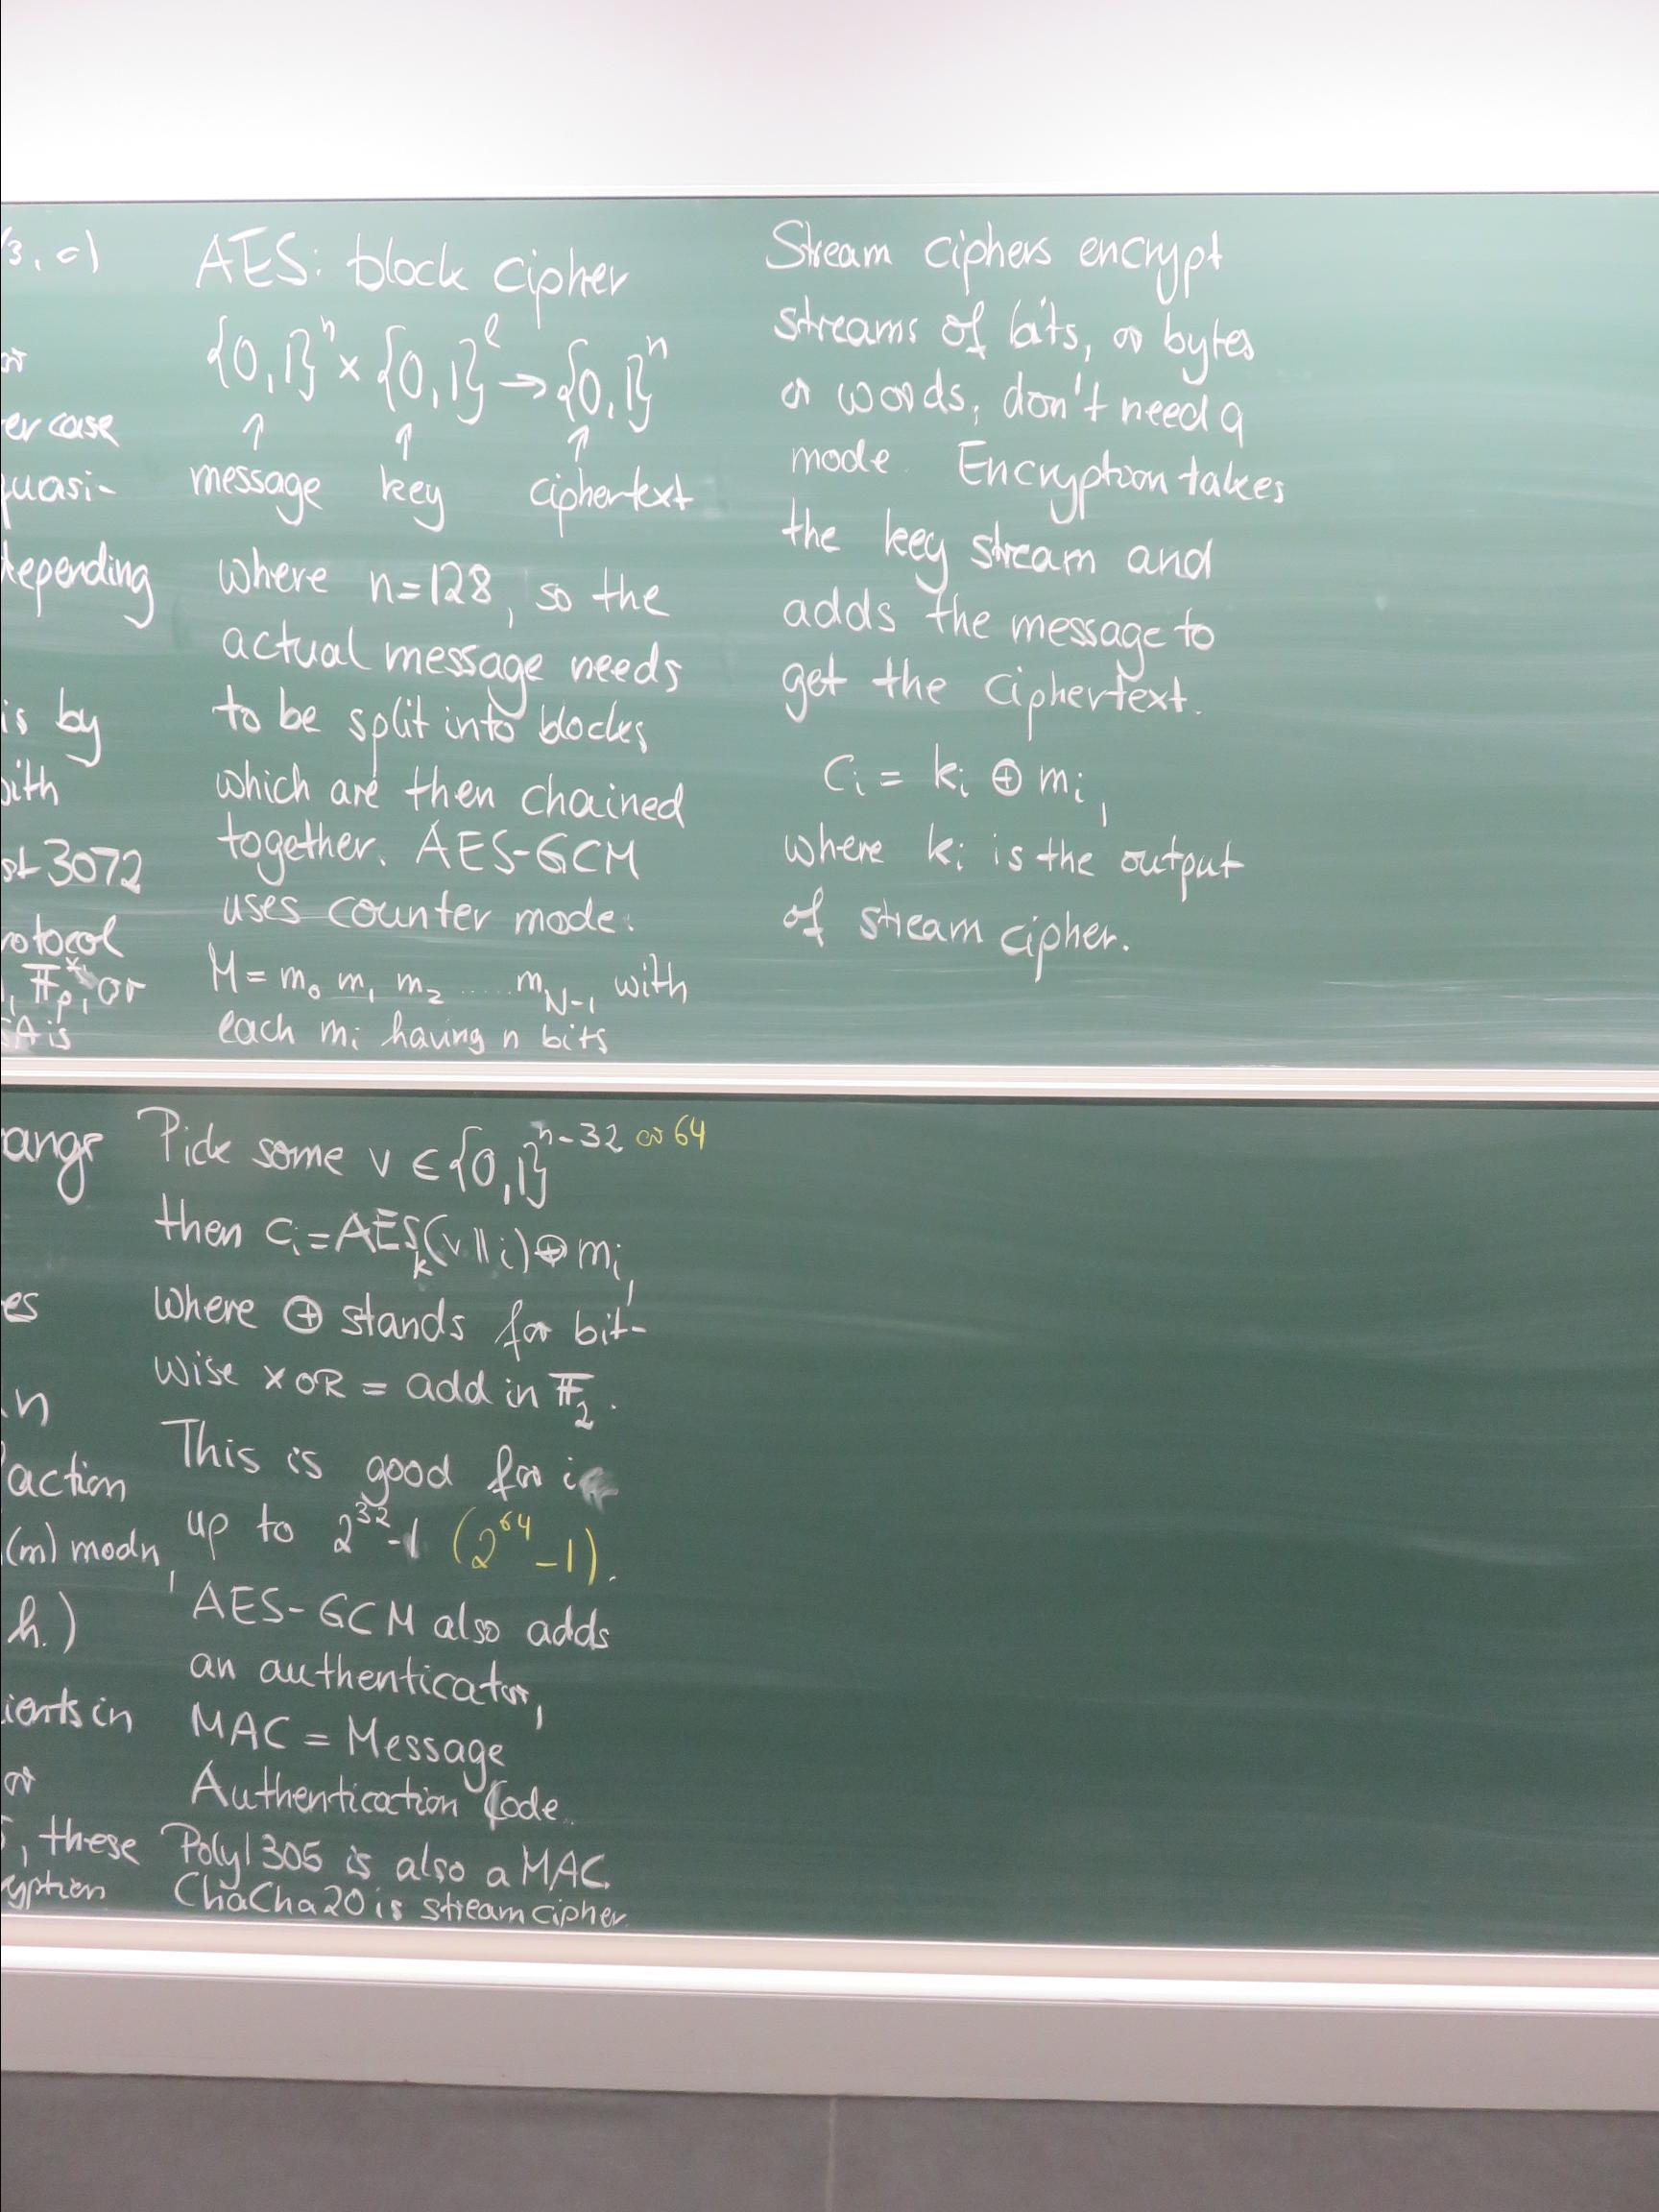 3, c)
or
er case
quasi-
depending
is by
with
st 3072
rotocol
, 𝔽ₚ*, or
SA is
AES: block cipher
{0,1}ⁿ × {0,1}^ℓ → {0,1}ⁿ
↑ ↑ ↑
message key ciphertext
where n=128, so the
actual message needs
to be split into blocks
which are then chained
together. AES-GCM
uses counter mode:
M = m₀ m₁ m₂ .... m_{N-1} with
each mᵢ having n bits
Stream ciphers encrypt
streams of bits, or bytes
or words, don't need a
mode. Encryption takes
the key stream and
adds the message to
get the ciphertext.
cᵢ = kᵢ ⊕ mᵢ,
where kᵢ is the output
of stream cipher.
ange
es
n
action
(m) mod n,
h.)
ients in
or
, these
yption
Pick some v ∈ {0,1}^{n-32 or 64}
then cᵢ = AES_k(v || i) ⊕ mᵢ,
where ⊕ stands for bit-
wise XOR = add in 𝔽₂.
This is good for i
up to 2³²-1 (2⁶⁴-1).
AES-GCM also adds
an authenticator,
MAC = Message
Authentication Code.
Poly1305 is also a MAC.
ChaCha20 is stream cipher.